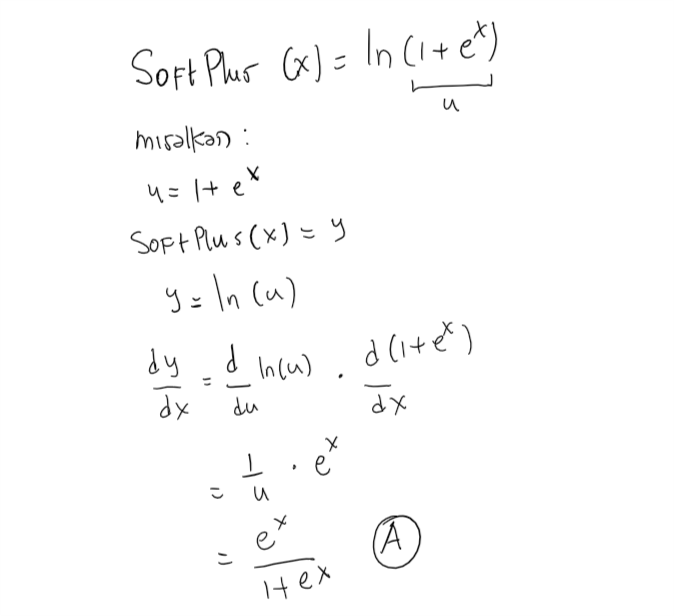 SoftPlus (x) = ln (1 + e^x)
u
misalkan :
u = 1 + e^x
SoftPlus(x) = y
y = ln (u)
dy/dx = d/du ln(u) . d(1+e^x)/dx
= 1/u . e^x
= e^x/1+ex (A)